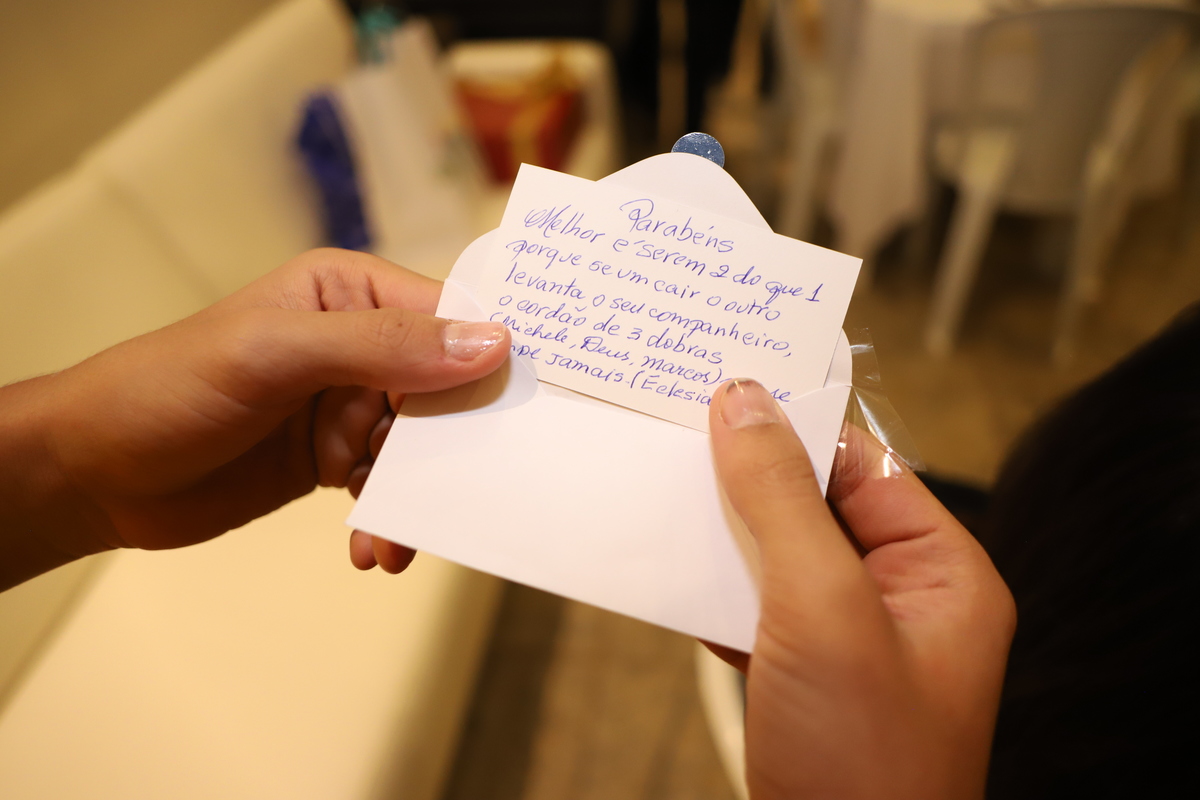 Parabéns
Melhor é serem 2 do que 1
porque se um cair o outro
levanta o seu companheiro,
o cordão de 3 dobras
(Michele, Deus, Marcos) se
jamais. (Eclesia